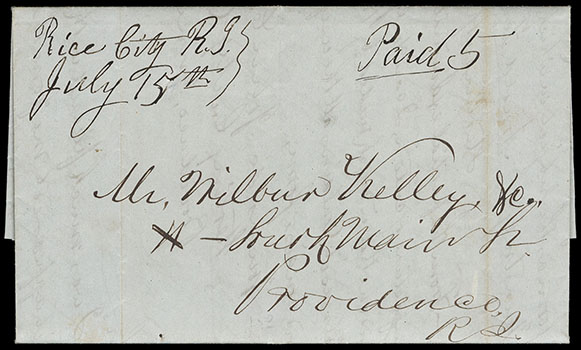 Rice City R.I.
July 15th
Paid 5
Mr. Wilbur Kelley, &c.
Main St
Providence,
R.I.